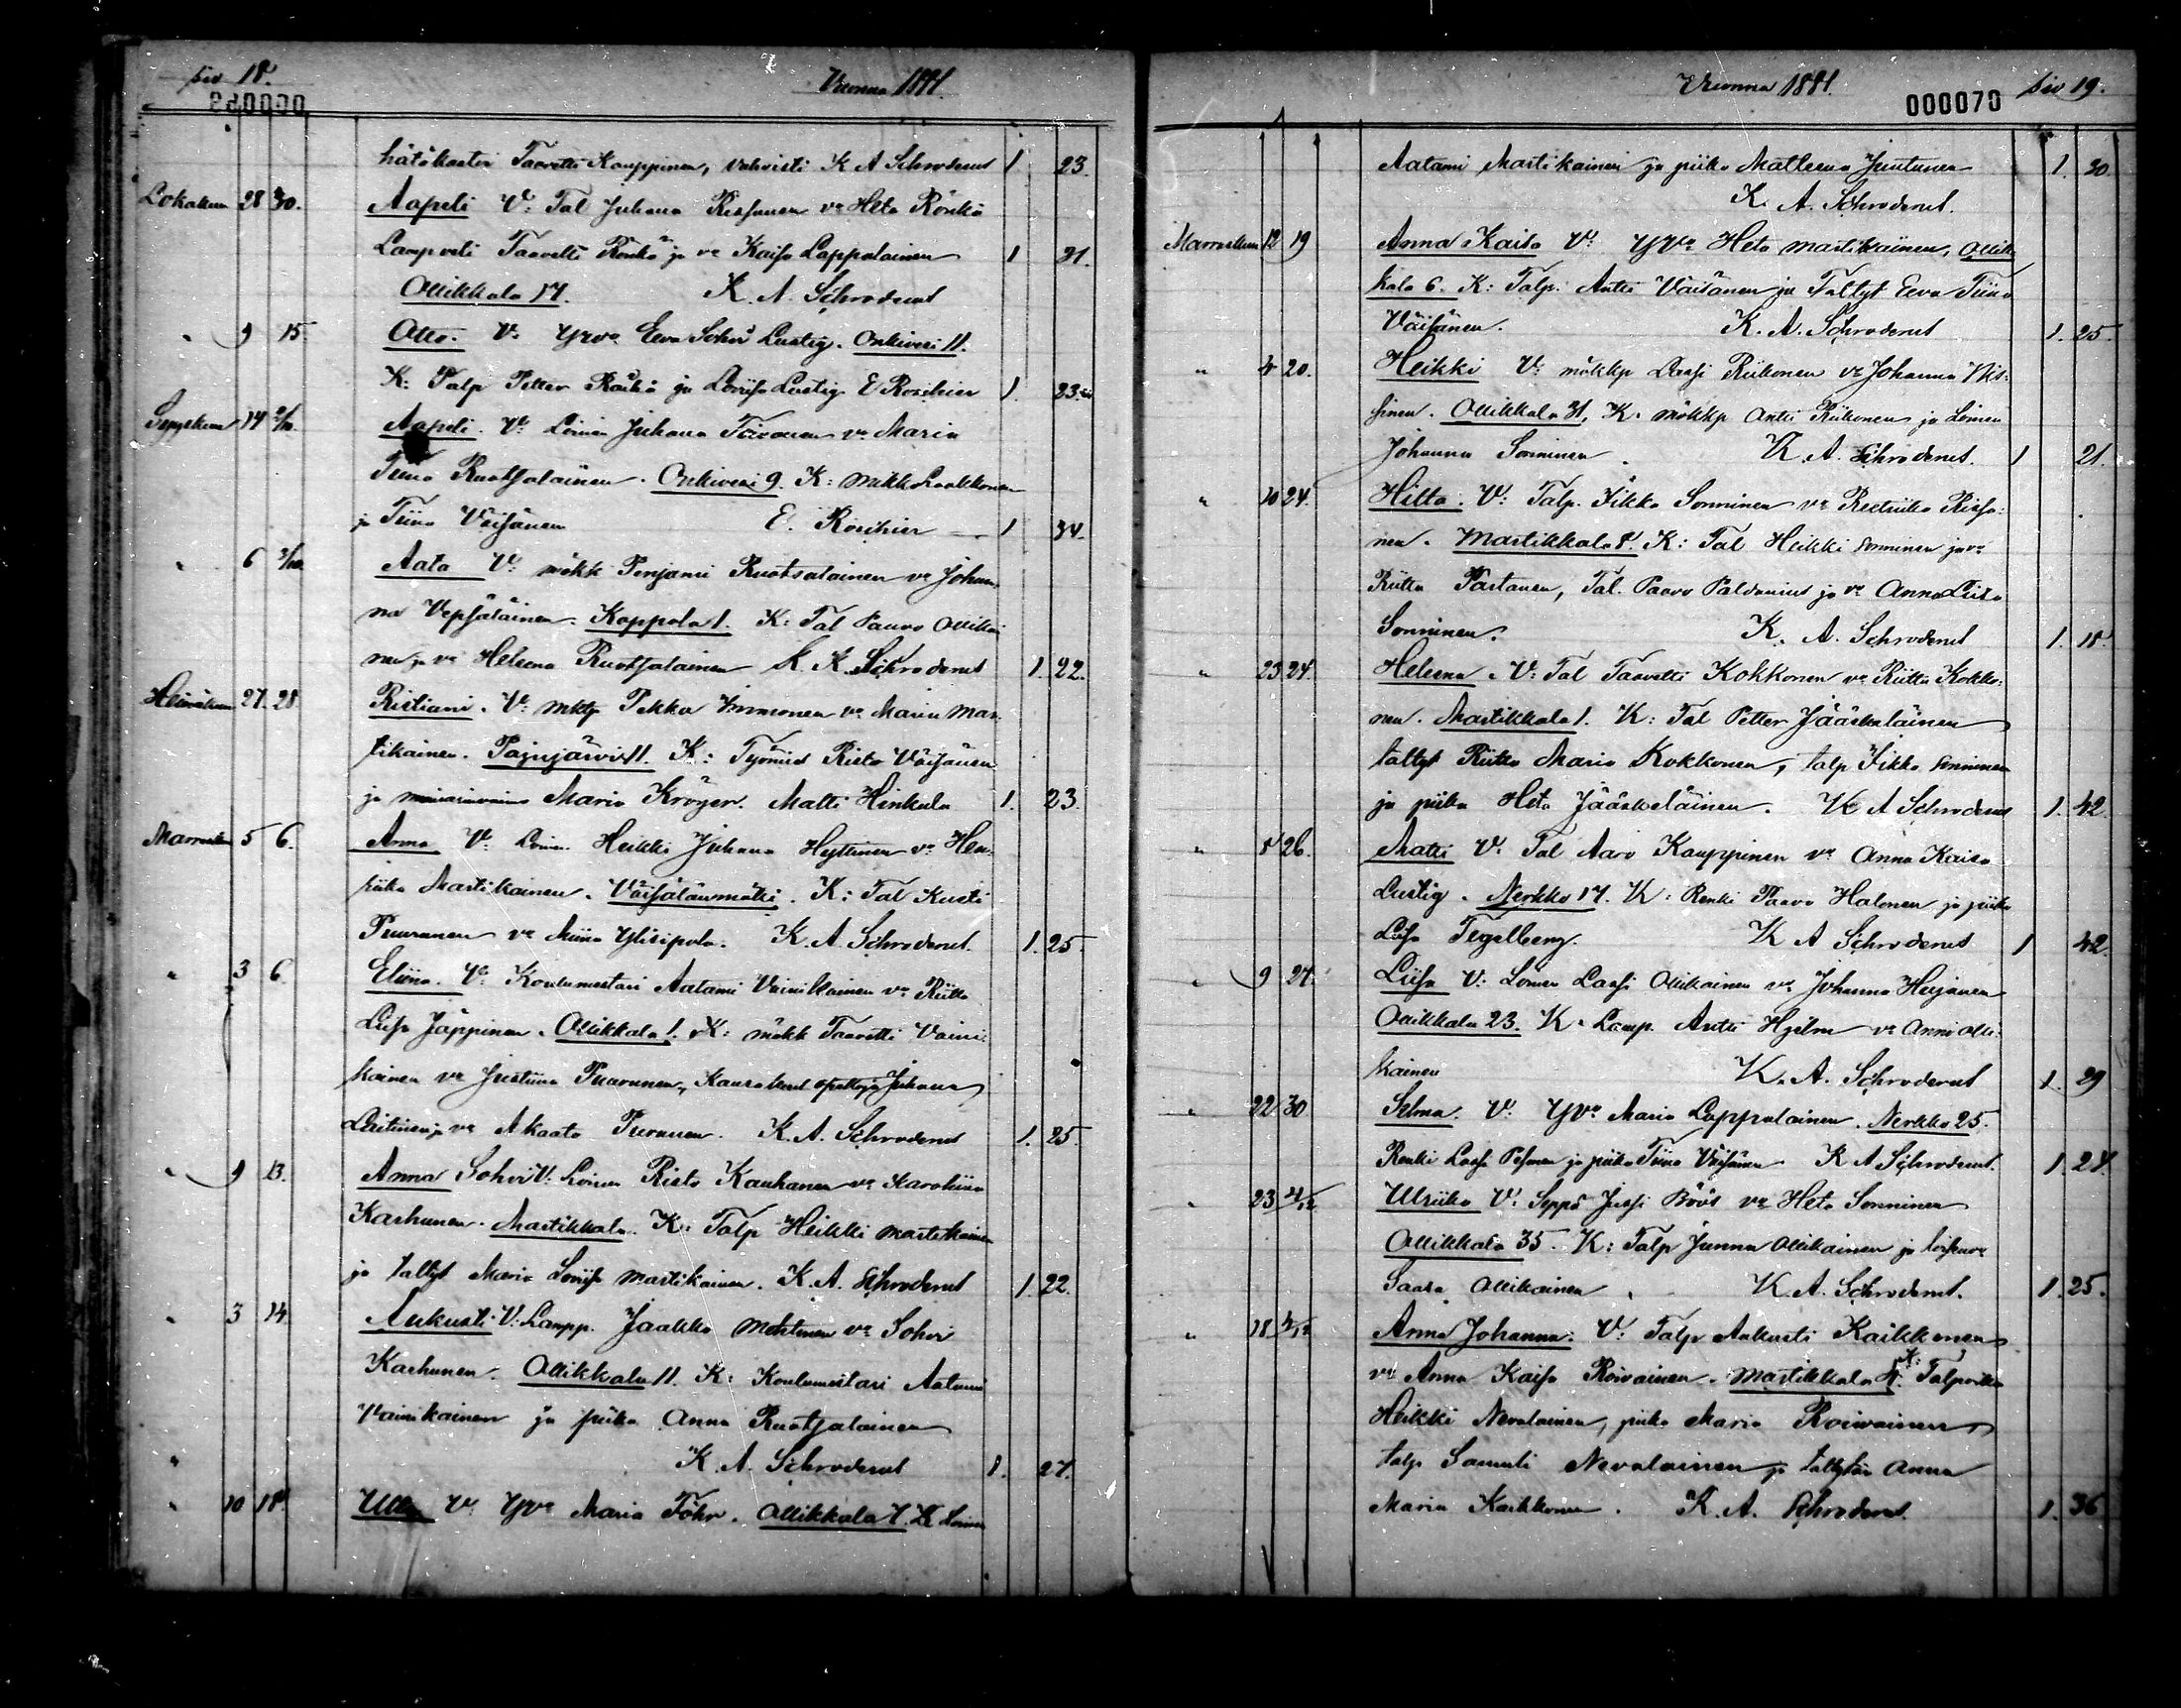 siv 18.
Vuonna 1881.
hätäkastei Taavetti Kauppinen, vahvisti K A Schroderus 1 23.
Lokakuu 28 30. Aapeli V: Tal Juhana Rissanen va Heta Rönkä
Lampveli Taavetti Rönkä ja va Kaisa Lappalainen 1 21.
Ollikkala 17. K. A. Schroderus
" 9 15. Otto. V. Yxva Eeva Sohvi Lustig. Onkivesi 11.
K: Talp Petter Räihä ja Loviisa Lustig. E Roschier 1. 23.
Syyskuu 14 Aapeli. V: Loinen Juhana Toivanen va Maria
Tiina Ruotsalainen. Onkivesi 9. K: Mikko Laakkonen
ja Tiina Väisänen E. Roschier 1 34.
" 6 Aata V: mökk Penjami Ruotsalainen va Johan
na Vepsäläinen. Koppola 1. K: Tal Paavo Ollikai
nen ja va Heleena Ruotsalainen K. A. Schroderus 1. 22.
Heinäkuu 27. 28 Ristiani. V: mktp Pekka Immonen va Maria Mar
tikainen. Pajujärvi 11. K: Työmies Risto Väisänen
ja Maria Kröger. Matti Hinkula 1. 23.
Marrask 5 6. Anna V: Loin. Heikki Juhana Hyttinen va Hen
riika Martikainen. Väisälänmäki. K: Tal Kusti
Puuranen va Miina Ylisipola. K. A. Schroderus. 1. 25.
" 3 6. Eliina. V: Koulumestari Aatami Vainikainen va Riitta
Liisa Jäppinen. Ollikkala 1. K: mökk Taavetti Vaini
kainen va Justiina Puuranen, Juhana
Laitinen ja va Akaata Puranen. K. A. Schroderus 1. 25.
" 9 13. Anna Sohvi V: Loinen Risto Kauhanen va Karoliina
Karhunen. Martikkala. K: Talp Heikki Martikainen
ja taltyt Maria Loviisa Martikainen. K. A. Schroderus 1. 22.
" 3 14 Aukusti V: Lampp. Jaakko Mehtinen va Sohvi
Karhunen. Ollikkala 11. K: Koulumestari Aatami
Vainikainen ja piika Anna Ruotsalainen
" K. A. Schroderus 1. 27.
" 10 18 Ulla V: Yxva Maria Föhr. Ollikkala 7. K Loinen
Vuonna 1881.
000070
siv 19.
Aatami Martikainen ja piika Matleena Juntunen 1. 30.
K. A. Schroderus.
Marraskuu 12 19 Anna Kaisa V: Yxva Heta Martikainen, Ollik
kala 6. K: Talp. Antti Väisänen ja Taltyt Eeva Tiina
Väisänen. K. A. Schroderus 1. 25.
" 4 20. Heikki V: mökkp Lassi Riikonen va Johanna Nis:
sinen. Ollikkala 31, K. mökkp Antti Riikonen ja Loinen
Johanna Sonninen. K. A. Schroderus. 1 21.
" 10 24. Hilta. V: Talp. Iikka Sonninen va Reetriika Rissa:
nen. Martikkala 8. K: Tal Heikki Sonninen ja va
Riitta Partanen, Tal. Paavo Paldanius ja va Anna Liisa
Sonninen. K. A. Schroderus 1. 18.
" 23 24. Heleena. V: Tal Taavetti Kokkonen va Riitta Kokko:
nen. Martikkala 1. K: Tal Petter Jääskeläinen
taltyt Riitta Maria Kokkonen, talp Iikka Sonninen
ja piika Heta Jääskeläinen. K A Schroderus 1. 42
" 8 26. Matti V: Tal Aaro Kauppinen va Anna Kaisa
Lustig. Nerkko 17. K: Renki Paavo Halonen ja piika
Liisa Tegelberg. K A Schroderus 1 42
" 9 27. Liisa V: Loinen Lassi Ollikainen va Johanna Huijanen
Ollikkala 23. K. Lamp. Antti Hjelm va Anni Olli:
kainen K. A. Schroderus 1. 29
" 22 30 Selma. V: Yxva Maria Lappalainen. Nerkko 25.
Renki Lassi Pesonen ja piika Tiina Väisänen K A Schroderus. 1 27
" 23 4/12 Ulriika V: Seppä Jussi Böös va Heta Sonninen
Ollikkala 35. K: Talp Junna Ollikainen ja
Saara Ollikainen. K. A. Schroderus. 1. 25.
" 18 4/12 Anna Johanna. V: Talp Aukusti Kaikkonen
va Anna Kaisa Roivainen. Martikkala 4. K: Talpoika
Heikki Nevalainen, piika Maria Roivainen,
talp Samuli Nevalainen ja taltytär Anna
Maria Kaikkonen. K. A. Schroderus. 1. 36